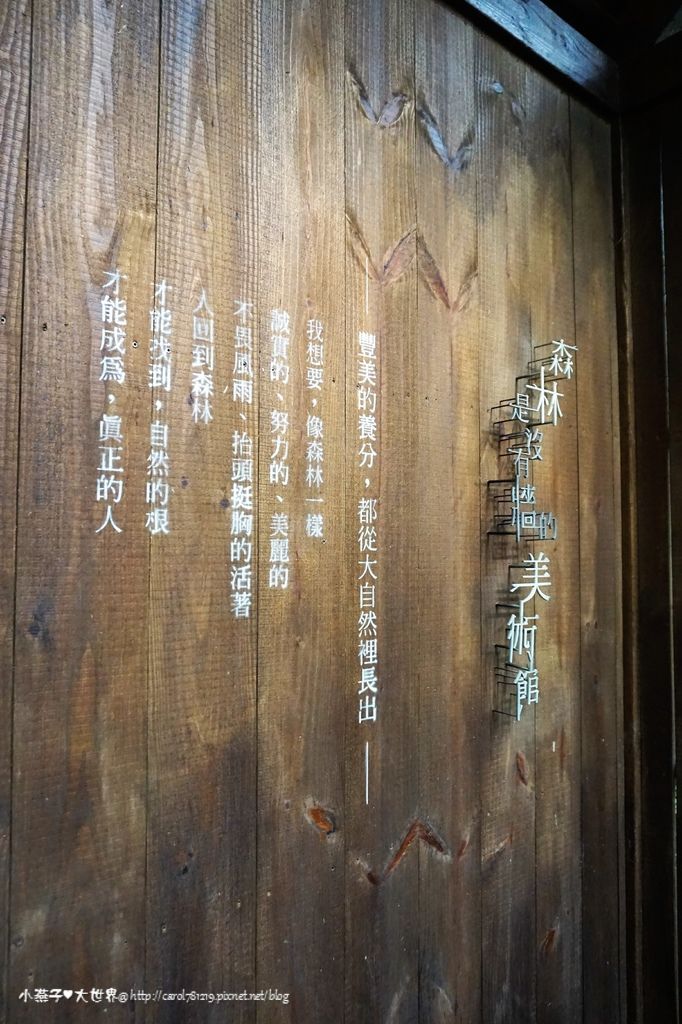 森林是沒有牆的美術館
—— 豐美的養分，都從大自然裡長出 ——
我想要，像森林一樣
誠實的、努力的、美麗的
不畏風雨、抬頭挺胸的活著
人回到森林
才能找到，自然的根
才能成為，真正的人
小燕子♥大世界@http://carol781219.pixnet.net/blog